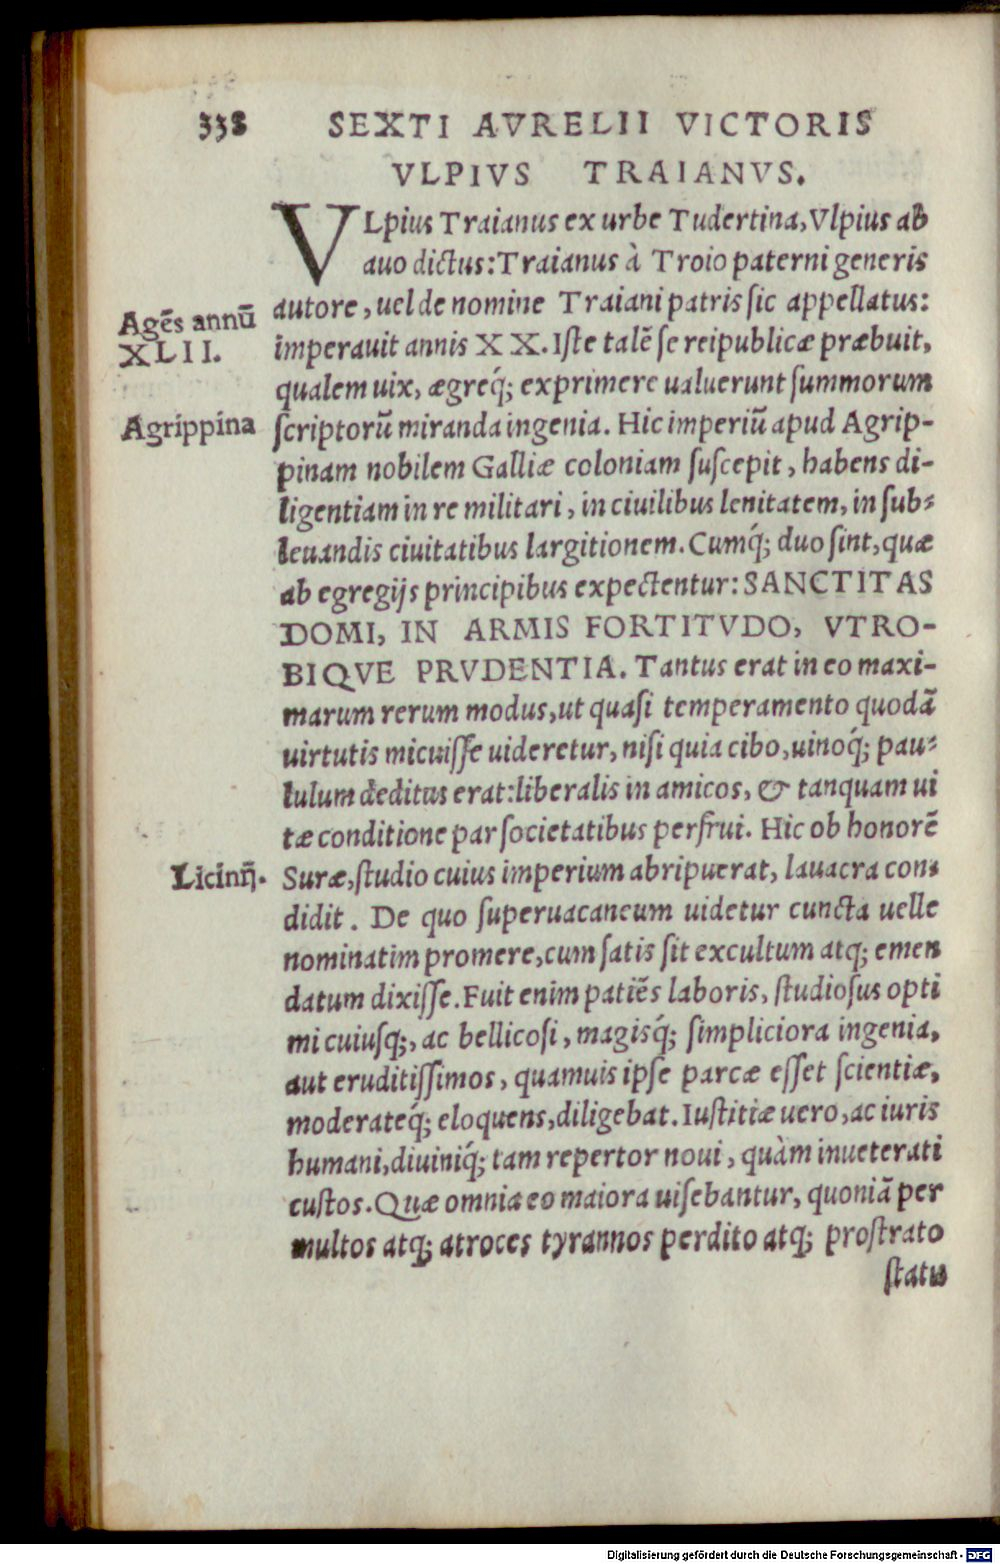 338 SEXTI AVRELII VICTORIS
VLPIVS TRAIANVS.
VLpius Traianus ex urbe Tudertina, Vlpius ab
auo dictus: Traianus à Troio paterni generis
autore, uel de nomine Traiani patris sic appellatus:
Agēs annū
XLII.
imperauit annis XX. Iste talē se reipublicæ præbuit,
qualem uix, ægreq́; exprimere ualuerunt summorum
Agrippina
scriptorū miranda ingenia. Hic imperiū apud Agrip-
pinam nobilem Galliæ coloniam suscepit, habens di-
ligentiam in re militari, in ciuilibus lenitatem, in sub-
leuandis ciuitatibus largitionem. Cumq́; duo sint, quæ
ab egregijs principibus expectentur: SANCTITAS
DOMI, IN ARMIS FORTITVDO, VTRO-
BIQVE PRVDENTIA. Tantus erat in eo maxi-
marum rerum modus, ut quasi temperamento quodā
uirtutis micuisse uideretur, nisi quia cibo, uinoq́; pau-
lulum deditus erat: liberalis in amicos, & tanquam ui
tæ conditione par societatibus perfrui. Hic ob honorē
Licinij.
Suræ, studio cuius imperium abripuerat, lauacra con-
didit. De quo superuacaneum uidetur cuncta uelle
nominatim promere, cum satis sit excultum atq; emen
datum dixisse. Fuit enim patiēs laboris, studiosus opti
mi cuiusq;, ac bellicosi, magisq́; simpliciora ingenia,
aut eruditissimos, quamuis ipse parcæ esset scientiæ,
moderateq́; eloquens, diligebat. Iustitiæ uero, ac iuris
humani, diuiniq́; tam repertor noui, quàm inueterati
custos. Quæ omnia eo maiora uisebantur, quoniā per
multos atq; atroces tyrannos perdito atq; prostrato
statu
Digitalisierung gefördert durch die Deutsche Forschungsgemeinschaft - DFG